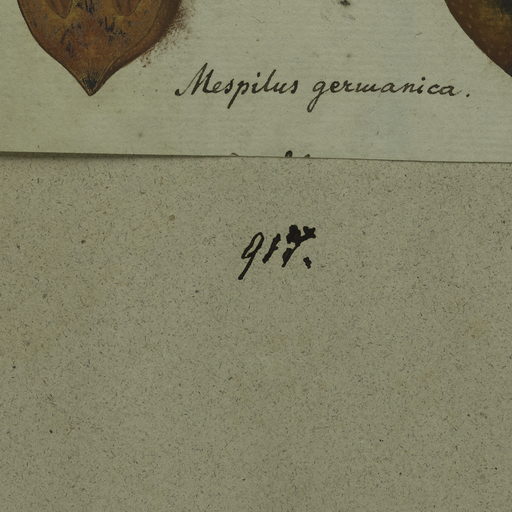 Mespilus germanica.
917.